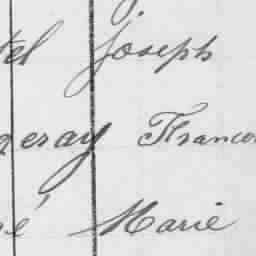 el Joseph
geray Francoi
é Marie